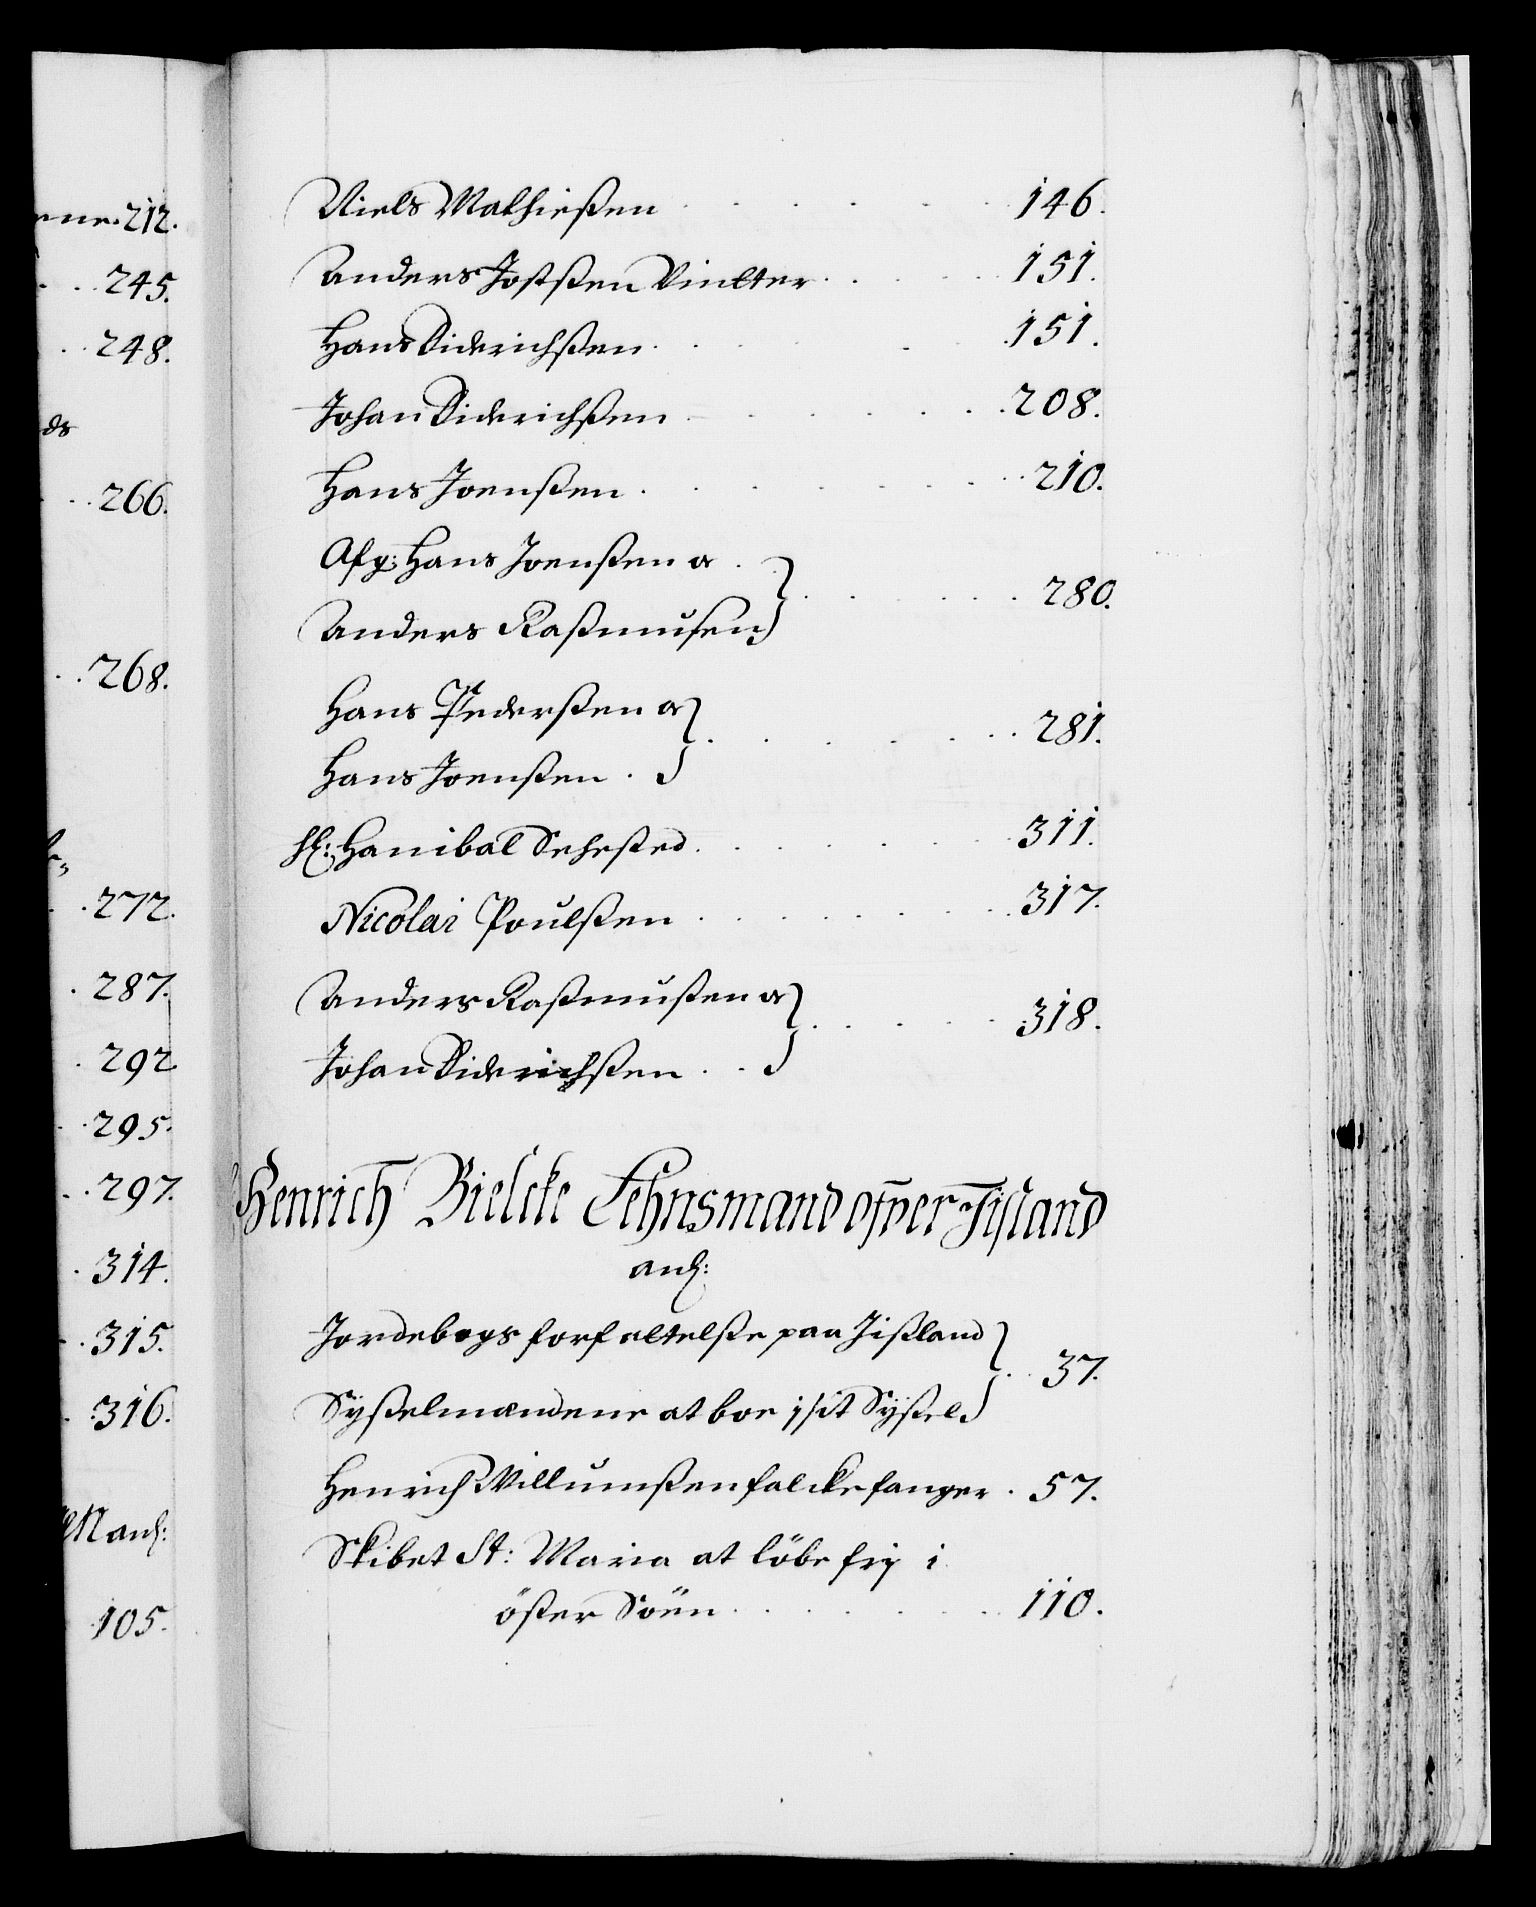 ene. 212.
245.
248.
ds
266.
268.
272.
287.
292
295.
297.
314.
315.
316.
anl:
105.
Niels Mathießen 146.
Anders Jostßen Vinlter 151.
Hans Diderichßen 151.
Johan Diderichßen 208.
Hans Joenßen 210.
Afg: Hans Joenßen &
Anders Raßmusen 280.
Hans Pederßen &
Hans Joenßen 281.
Sl: Hanibal Sehested 311.
Nicolai Poulßen 317.
Anders Raßmußen &
Johan Diderichßen 318.
Henrich Bielcke Lehnsmand ofver Jisland
anl:
Jordebogs forfaltelße paa Jißland
Syßelmændene at boe j sit Syßel 37.
Henrich Willumßen falckefanger 57.
Skibet St: Maria at löbe frj i
öster Söen 110.